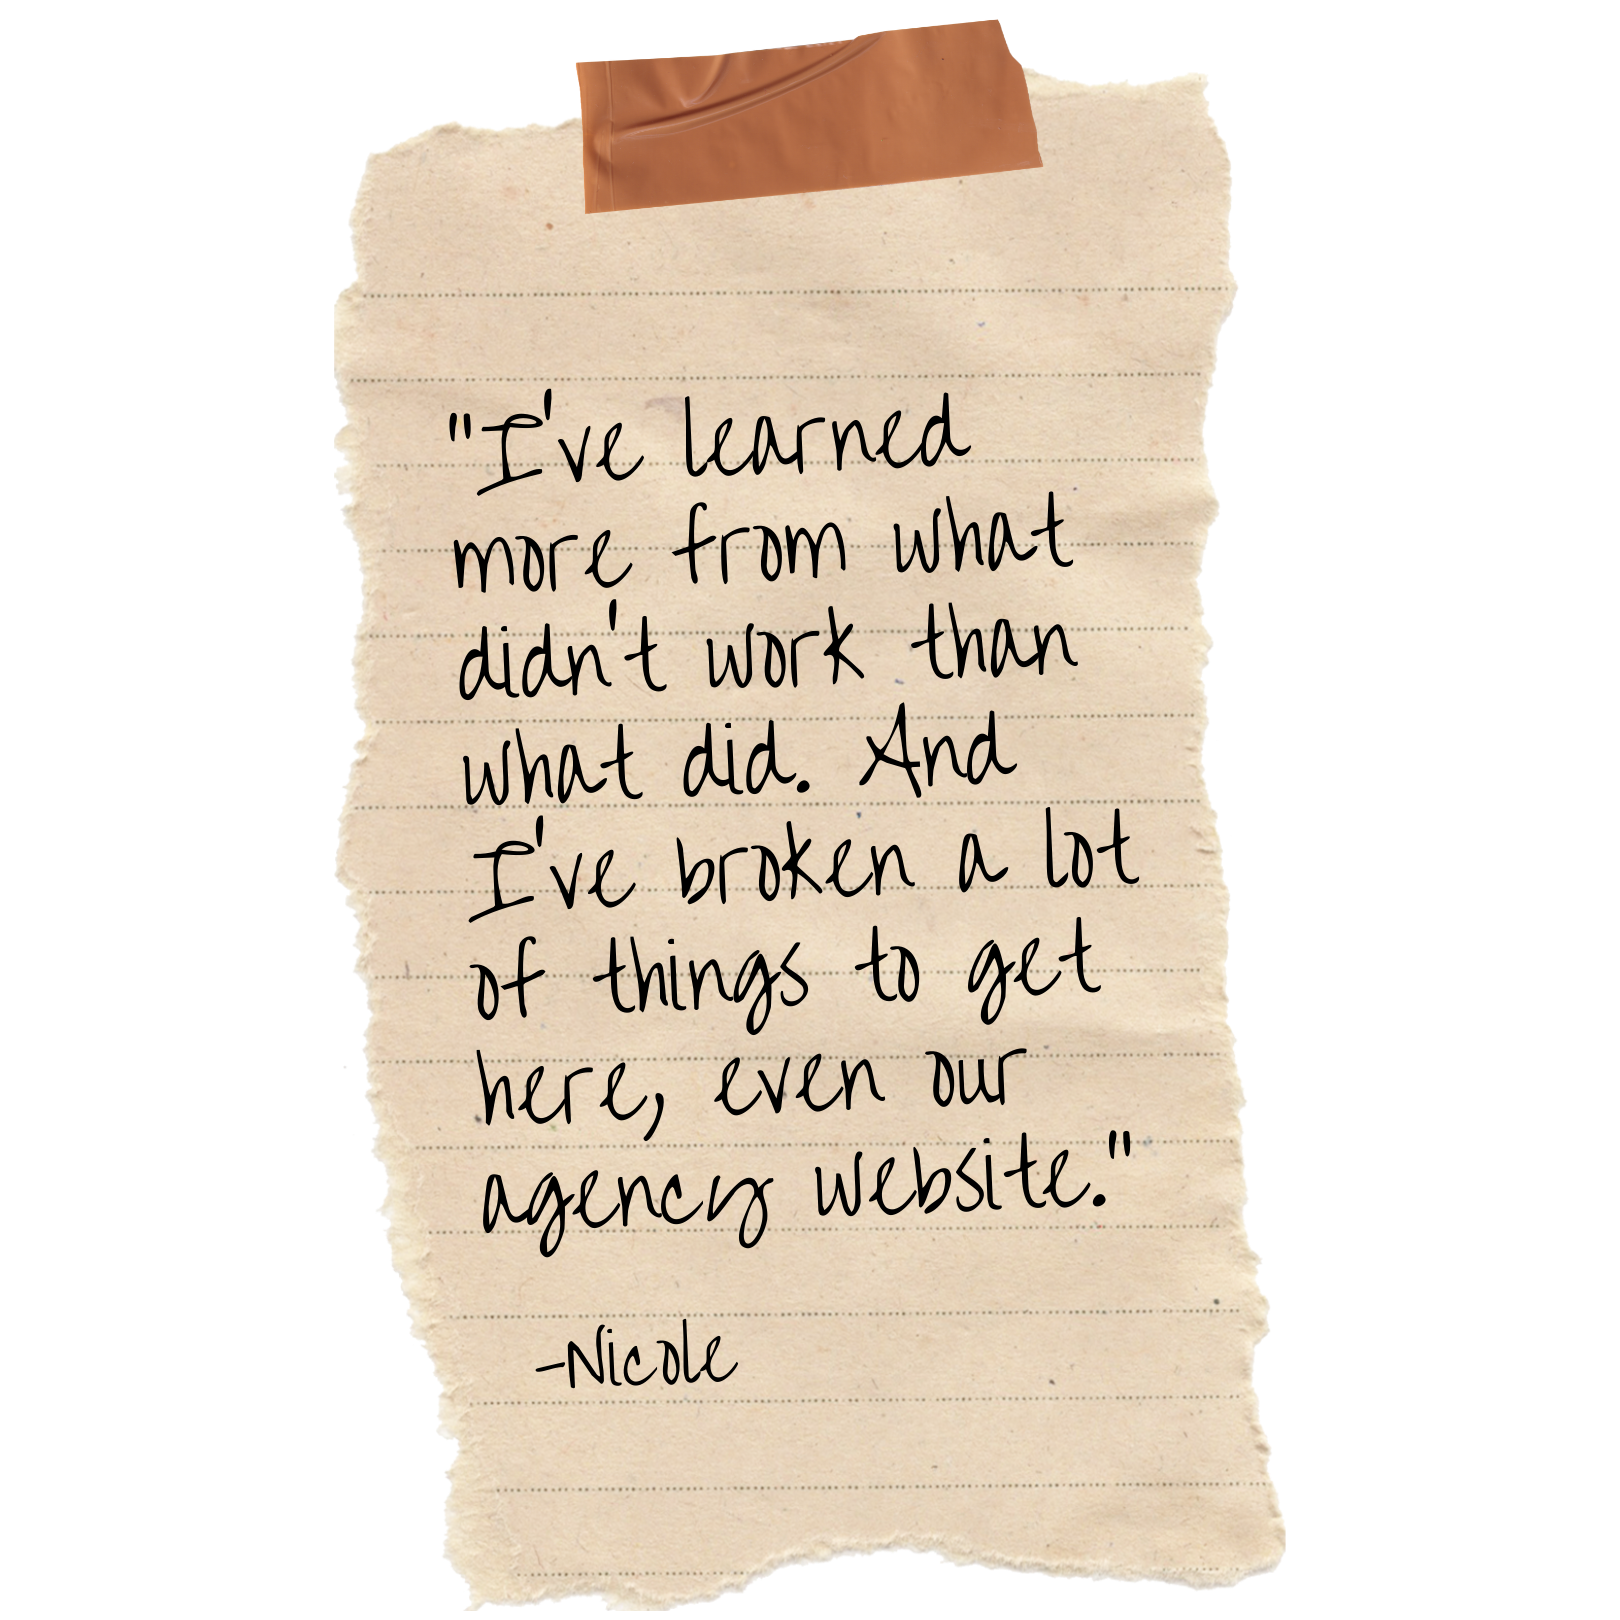 "I've learned
more from what
didn't work than
what did. And
I've broken a lot
of things to get
here, even our
agency website."
-Nicole